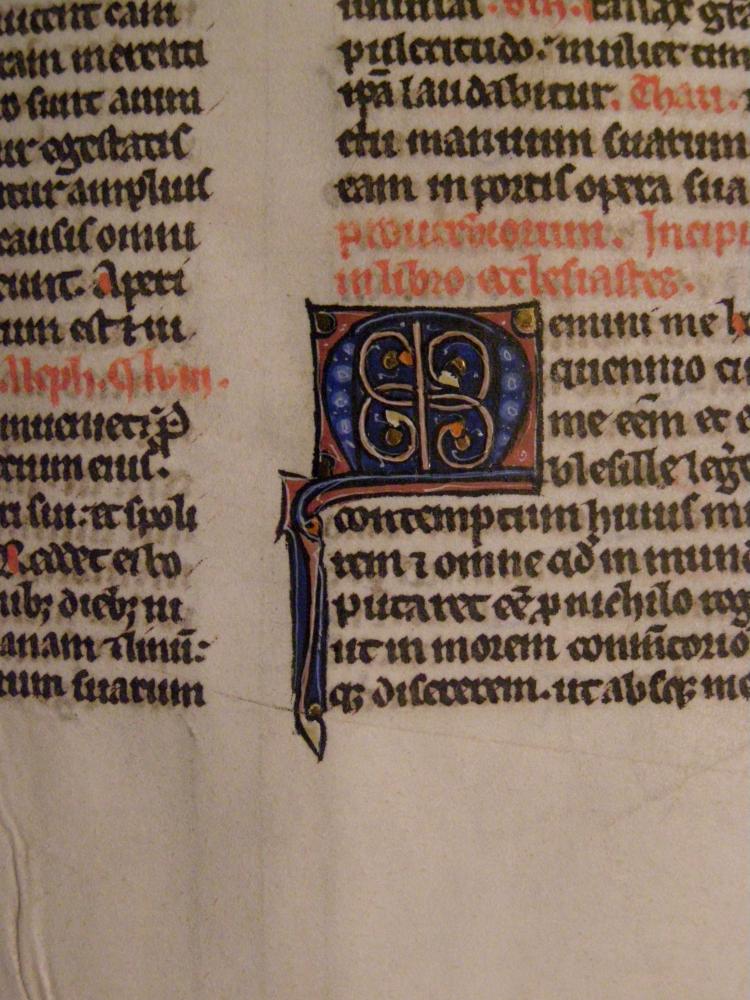 ucent eam
ram merenti
o sunt animi
ur egestatis
tur amplius
causis omniu
eunt. Aperi
tum est ⁊ iu
Aleph.
inueniet
tium eius.
ri sui: et spoli
Reddet ei bo
ibꝫ diebꝫ ui
anam ⁊ linū:
uum suarum
Sin. Fallax gr̄a
pulcritudo: mulier tim
ip̄a laudabitur. Thau.
ctu manuum suarum
eam in portis opera sua
prouerbiorum. Incipi
in libro ecclesiastes.
Memini me h
quennio
me eēm et
blesille
contemptum huius m
rem ⁊ omne qd̓ in mun
putaret eē̄ ꝓ nichilo rog
ut in morem
qꝫ dissererem. ut absqꝫ me